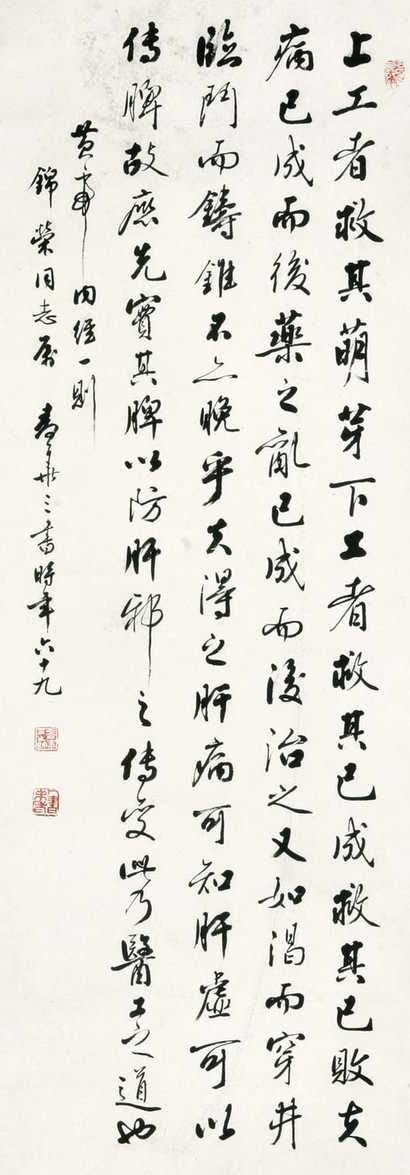 上工者救其萌芽下工者救其已成救其已敗夫
病已成而後藥之亂已成而後治之又如渴而穿井
臨鬥而鑄錐不亦晚乎夫得之肝病可知肝虛可以
傳脾故應先實其脾以防肝邪之傳變此乃醫工之道也
黃帝內經一則
錦榮同志屬 書時年六十九